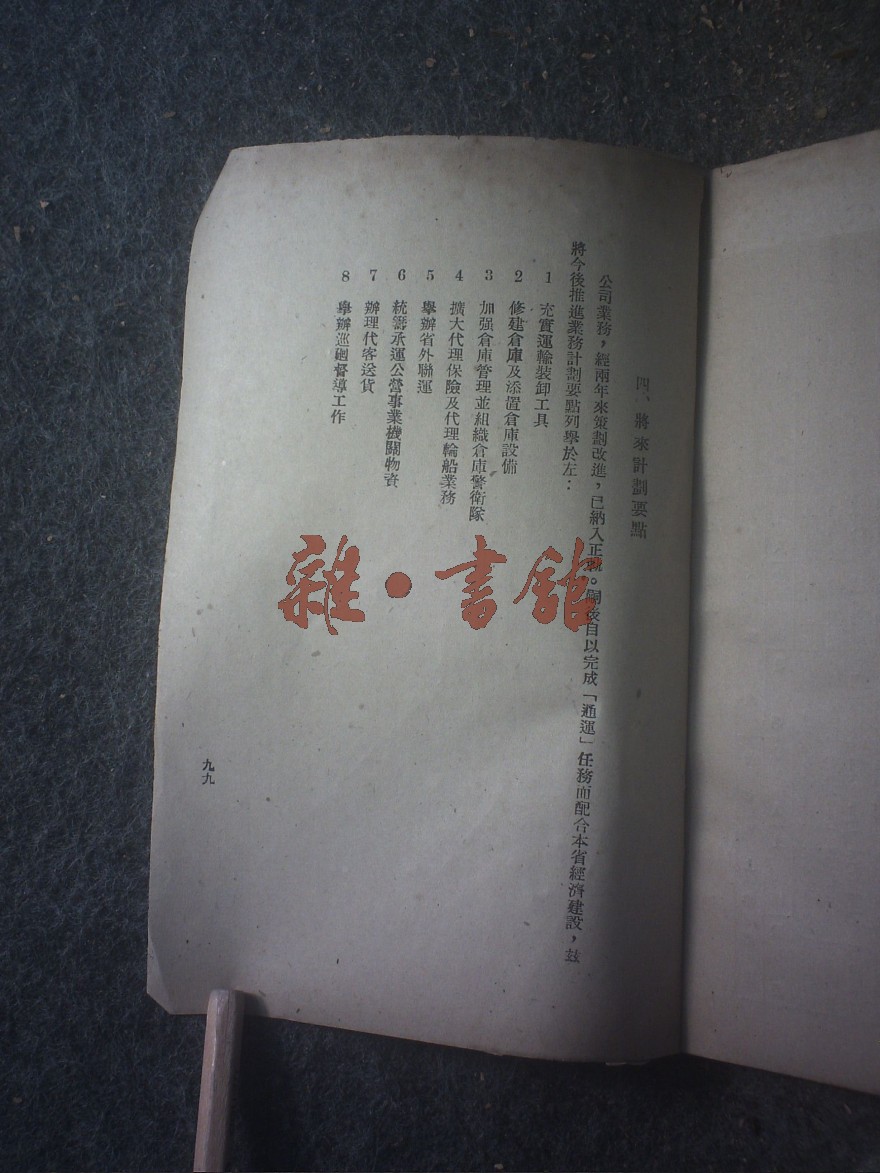 四、將來計劃要點
公司業務，經兩年來策劃改進，已納入正軌。嗣後自以完成「通運」任務而配合本省經濟建設，茲
將今後推進業務計劃要點列舉於左：
1 充實運輸裝卸工具
2 修建倉庫及添置倉庫設備
3 加强倉庫管理並組織倉庫警衛隊
4 擴大代理保險及代理輪船業務
5 舉辦省外聯運
6 統籌承運公營事業機關物資
7 辦理代客送貨
8 舉辦巡迴督導工作
九九
雜·書館